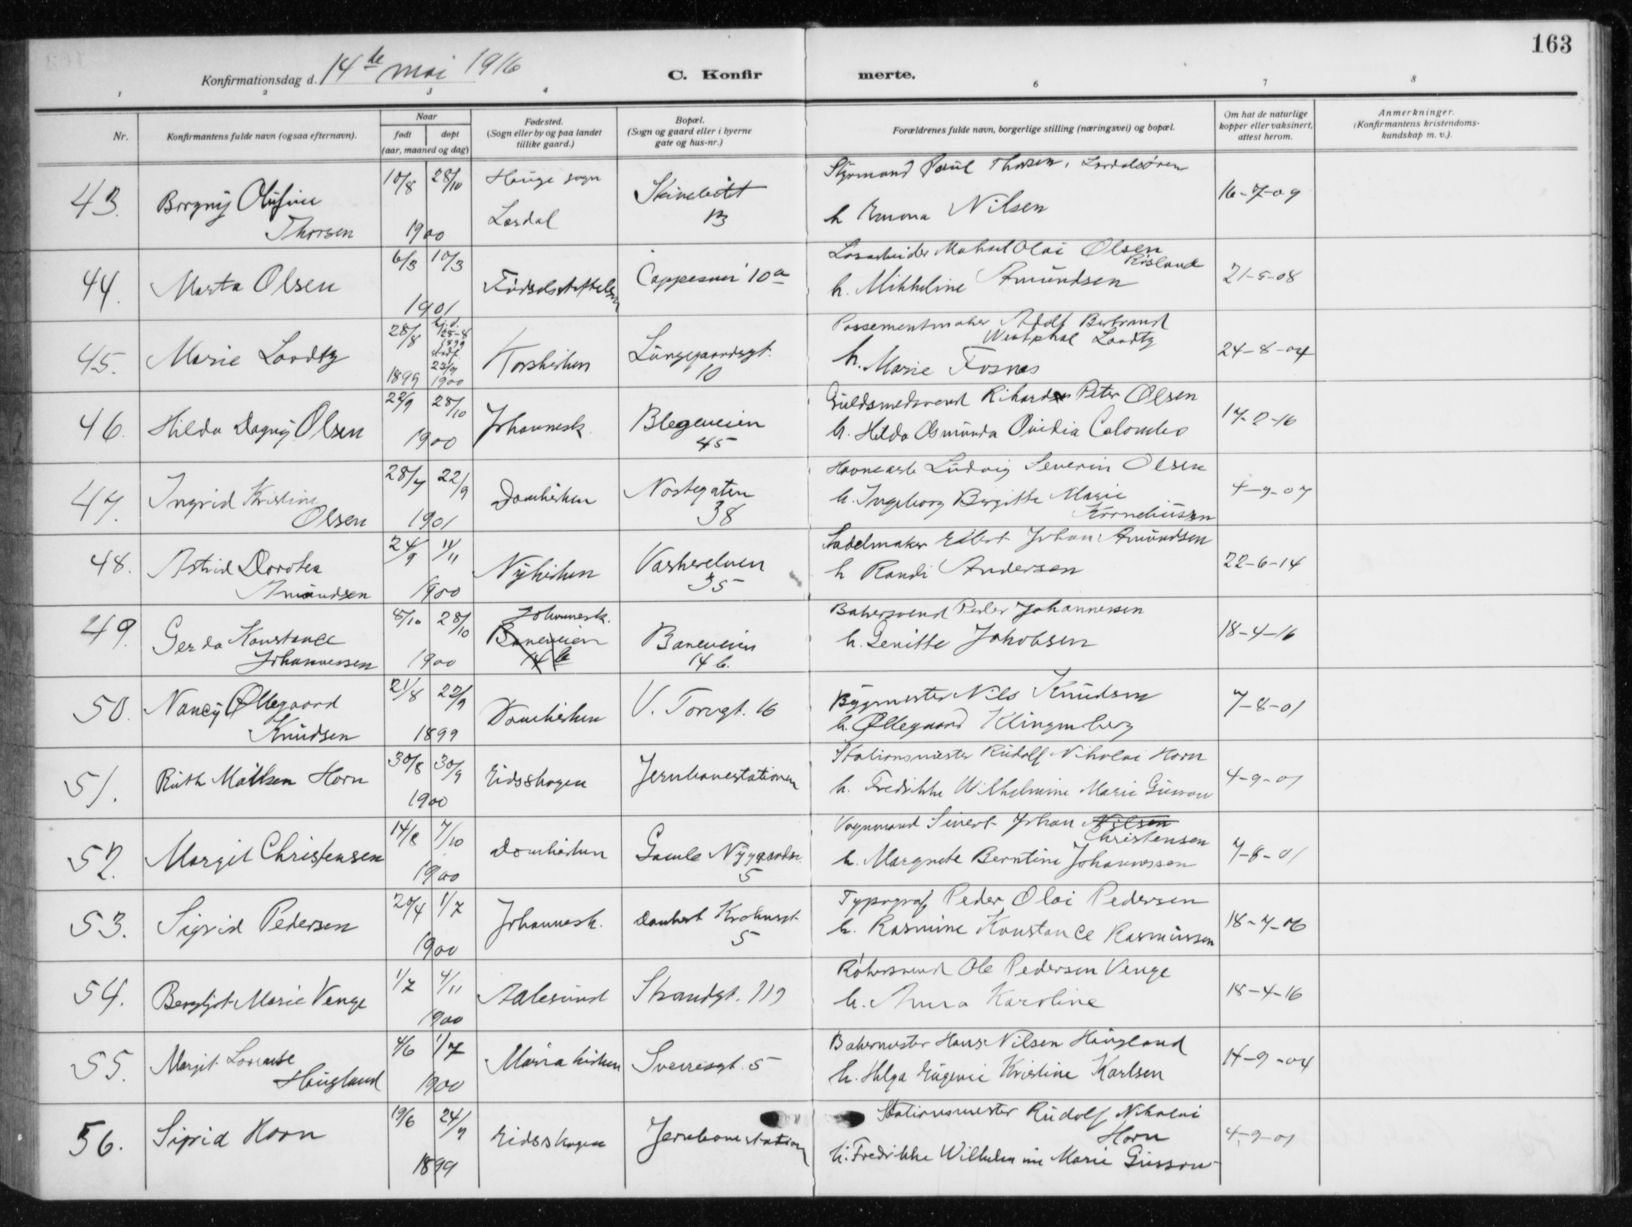 163
Konfirmationsdag d. 14de mai 1916
C. Konfir merte.
1 2 3 4 6 7 8
Nr.
Konfirmantens fulde navn (ogsaa efternavn).
Naar
født døpt
(aar, maaned og dag)
Fødested.
(Sogn eller by og paa landet
tillike gaard.)
Bopæl.
(Sogn og gaard eller i byerne
gate og hus-nr.)
Forældrenes fulde navn, borgerlige stilling (næringsvei) og bopæl.
Om hat de naturlige
kopper eller vaksinert,
attest herom.
Anmerkninger.
(Konfirmantens kristendoms-
kundskap m. v.).
43. Borgny Olufine
Thorsen
10/8 28/10
1900
Hauge sogn
Lærdal
13
Styrmand Paul Thorsen, Lærdalsøren
h Emma Nilsen
16-7-09
44. Marta Olsen
6/3 10/3
1901
Fødselsstiftelsen
Cappesmei 10a
Olai Olsen
Risland
h. Mikkeline Amundsen
21-5-08
45. Marie Landtz
28/8
1899
1900
Korskirken
Lungegaardsgt.
10
Possementmaker Adolf Bertrand
Westphal Landtz
h. Marie Fosnes
24-8-04
46. Hilda Dagny Olsen
22/9 28/10
1900
Johannesk.
Blegeveien
45
Guldsmedsvend Rikard Peter Olsen
h. Hilda Osmunda Ovidia Colombo
47. Ingrid Kristine
Olsen
28/7 22/9
1901
Domkirken
Nostegaten
38
Havnearb Ludvig Severin Olsen
h. Ingeborg Bergitte Marie
Korneliussen
4-9-07
48. Astrid Dorotea
Amundsen
24/9 11/11
1900
Nykirken
Vaskerelven
35
Sadelmaker Johan Amundsen
h Randi Andersen
22-6-14
49. Gerda Konstance
Johannessen
8/10 28/10
1900
Johannesk.
Baneveien
14 b
Baneveien
14 b.
Bakersvend Peder Johannessen
h. Jakobsen
18-4-16
50. Nancy Øllegaard
Knudsen
21/8 22/9
1899
Domkirken
V. Torvgt. 16
Bygmester Nils Knudsen
h. Øllegaard Klingenberg
7-8-01
51. Ruth Maillsen Horn
30/8 30/9
1900
Eidsskogen
Jernbanestationen
Stationsmester Rudolf Nikolai Horn
h. Fredrikke Wilhelmine Marie Gusson
4-9-01
52. Margit Christensen
14/8 7/10
1900
Domkirken
Gamle Nygaardsv.
5
Vognmand Sivert Johan Nilsen
Christensen
h. Margrete Berntine Johannessen
7-8-01
53. Sigrid Pedersen
20/4 1/7
1900
Johannesk.
Krohnsgt
5
Typograf Peder Olai Pedersen
h. Rasmine Konstance Rasmussen
18-7-06
54. Bergljot Marie Venge
1/7 4/11
1900
Aalesund
Strandgt. 119
Ole Pedersen Venge
h. Anna Karoline
18-4-16
55. Margit Lovise
Haugland
4/6 1/7
1900
Mariakirken
Sverresgt. 5
Bakermester Hans Nilsen Haugland
h. Helga Eugenie Kristine Karlsen
14-9-04
56. Sigrid Horn
19/6 24/9
1899
Eidsskogen
Jernbanestation
Stationsmester Rudolf Nikolai
Horn
h. Fredrikke Wilhelmine Marie Gusson
4-9-01